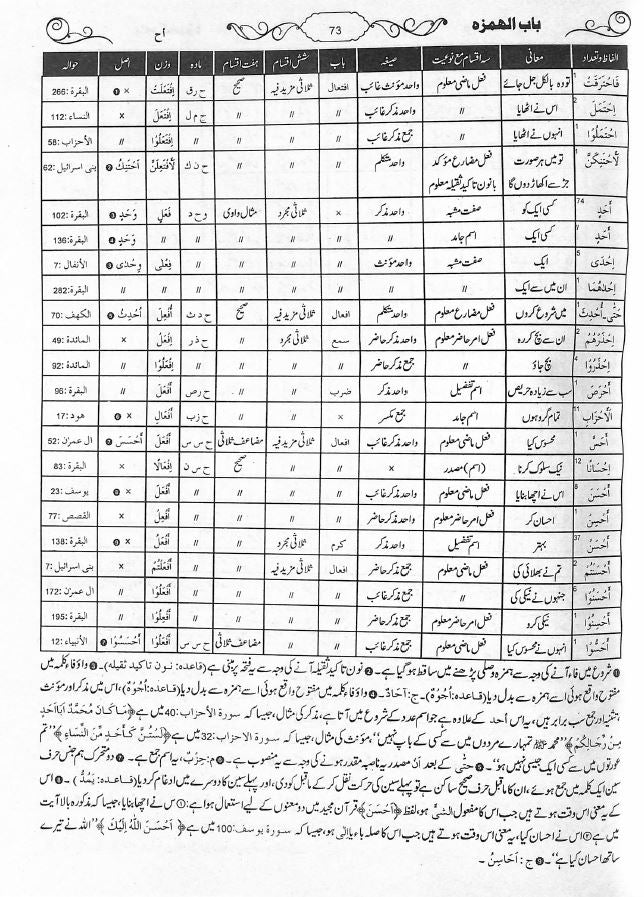 باب الهمزه
73
أح
الفاظ وتعداد | معانی | سہ اقسام مع نوعیت | صیغہ | باب | شش اقسام | ہفت اقسام | مادہ | وزن | اصل | حوالہ
فَاحْتَرَقَتْ 1 | تو وہ بالکل جل جائے | فعل ماضی معلوم | واحد مؤنث غائب | افتعال | ثلاثی مزید فیہ | صحیح | ح ر ق | اِفْتَعَلَتْ | × ❶ | البقرة: 266
اِحْتَمَلَ 2 | اس نے اٹھایا | // | واحد مذکر غائب | // | // | // | ح م ل | اِفْتَعَلَ | × | النساء: 112
اِحْتَمَلُوْا 1 | انہوں نے اٹھایا | // | جمع مذکر غائب | // | // | // | // | اِفْتَعَلُوْا | × | الأحزاب: 58
لَاَحْتَنِكَنَّ 1 | تو میں ہر صورت | فعل مضارع مؤکد | واحد متکلم | // | // | // | ح ن ك | لَاَفْتَعِلَنَّ | اَحْتَنِكُ ❷ | بنی اسرائیل: 62
جڑ سے اکھاڑ دوں گا | بانون تاکید ثقیلہ معلوم
أَحَدٍ 74 | کسی ایک کو | صفت مشبہ | واحد مذکر | × | ثلاثی مجرد | مثال واوی | و ح د | فَعَلٍ | وَحَدٍ ❸ | البقرة: 102
أَحَدٍ 7 | کسی ایک | اسم جامد | // | // | // | // | // | // | وَحَدٍ ❹ | البقرة: 136
اِحْدَى 5 | ایک | صفت مشبہ | واحد مؤنث | // | // | // | // | فِعْلٰى | وِحْدٰى ❸ | الأنفال: 7
اِحْدٰهُمَا | ان میں سے ایک | // | // | // | // | // | // | // | // | البقرة: 282
حَتّٰى۔اُحْدِثَ 1 | میں شروع کروں | فعل مضارع معلوم | واحد متکلم | افعال | ثلاثی مزید فیہ | صحیح | ح د ث | اُفْعِلَ | اُحْدِثُ ❺ | الكهف: 70
اِحْذَرْهُمْ 2 | ان سے بچ کر رہ | فعل امر حاضر معلوم | واحد مذکر حاضر | سمع | ثلاثی مجرد | // | ح ذ ر | اِفْعَلْ | × | المائدة: 49
اِحْذَرُوْا 4 | بچ جاؤ | // | جمع مذکر حاضر | // | // | // | // | اِفْعَلُوْا | // | المائدة: 92
أَحْرَصَ 1 | سب سے زیادہ حریص | اسم تفضیل | واحد مذکر | ضرب | // | // | ح ر ص | أَفْعَلَ | // | البقرة: 96
اَلْاَحْزَابِ 11 | تمام گروہوں | اسم جامد | جمع مکسر | × | // | // | ح ز ب | أَفْعَالِ | × ❻ | هود: 17
أَحَسَّ 1 | محسوس کیا | فعل ماضی معلوم | واحد مذکر غائب | افعال | ثلاثی مزید فیہ | مضاعف ثلاثی | ح س س | أَفْعَلَ | أَحْسَسَ ❼ | ال عمران: 52
اِحْسَانًا 12 | نیک سلوک کرنا | (اسم) مصدر | × | // | // | صحیح | ح س ن | اِفْعَالًا | × | البقرة: 83
أَحْسَنَ 8 | اس نے اچھا بنایا | فعل ماضی معلوم | واحد مذکر غائب | // | // | // | // | أَفْعَلَ | × ❽ | يوسف: 23
أَحْسِنْ 1 | احسان کر | فعل امر حاضر معلوم | واحد مذکر حاضر | // | // | // | // | أَفْعِلْ | × | القصص: 77
أَحْسَنُ 37 | بہتر | اسم تفضیل | واحد مذکر | کرم | ثلاثی مجرد | // | // | أَفْعَلُ | × ❾ | البقرة: 138
أَحْسَنْتُمْ 2 | تم نے بھلائی کی | فعل ماضی معلوم | جمع مذکر حاضر | افعال | ثلاثی مزید فیہ | // | // | أَفْعَلْتُمْ | × | بنی اسرائیل: 7
أَحْسَنُوْا 6 | جنہوں نے نیکی کی | // | جمع مذکر غائب | // | // | // | // | أَفْعَلُوْا | // | ال عمران: 172
أَحْسِنُوْا 1 | نیکی کرو | فعل امر حاضر معلوم | جمع مذکر حاضر | // | // | // | // | أَفْعِلُوْا | // | البقرة: 195
أَحَسُّوْا 1 | انہوں نے محسوس کیا | فعل ماضی معلوم | جمع مذکر غائب | // | // | مضاعف ثلاثی | ح س س | أَفْعَلُوْا | أَحْسَسُوْا ❼ | الأنبياء: 12
❶ شروع میں فاء آنے کی وجہ سے ہمزہ وصلی پڑھنے میں ساقط ہو گیا ہے۔ ❷ نون تاکید ثقیلہ آنے کی وجہ سے یہ فتحہ پر مبنی ہے (قاعدہ: نون تاکید ثقیلہ)۔ ❸ واو فاء کلمہ میں
مفتوح واقع ہوئی اسے ہمزہ سے بدل دیا (قاعدہ: اُجُوْهٌ)۔ ج: آحَادٌ۔ ❹ واو فاء کلمہ میں مفتوح واقع ہوئی اسے ہمزہ سے بدل دیا (قاعدہ: اُجُوْهٌ)، اس میں مذکر اور مؤنث
، تثنیہ اور جمع سب برابر ہیں، یہ اس أحد کے علاوہ ہے جو اسم عدد کے شروع میں آتا ہے، مذکر کی مثال، جیسا کہ سورة الأحزاب: 40 میں ہے ﴿مَا كَانَ مُحَمَّدٌ اَبَا اَحَدٍ
مِنْ رِّجَالِكُمْ﴾ "محمد ﷺ تمہارے مردوں میں سے کسی کے باپ نہیں"، مؤنث کی مثال، جیسا کہ سورة الاحزاب: 32 میں ہے ﴿لَسْتُنَّ كَاَحَدٍ مِّنَ النِّسَاءِ﴾ "تم
عورتوں میں سے کسی ایک جیسی نہیں ہو"۔ ❺ حَتّٰى کے بعد أَنْ مصدریہ ناصبہ مقدر ہونے کی وجہ سے یہ منصوب ہے۔ ❻ م: حِزْبٌ، یہ اسم جمع ہے۔ ❼ دو متحرک ہم جنس حرف
سین ایک کلمہ میں جمع ہوئے، ان کا ماقبل حرف صحیح ساکن ہے تو پہلے سین کی حرکت نقل کر کے ماقبل کو دی، اور پہلے سین کا دوسرے میں ادغام کر دیا (قاعدہ: يَمُدُّ)۔ ❽ اس
کے یہ معنی اس وقت ہوتے ہیں جب اس کا مفعول الشیٔ ہو، لفظ ﴿اَحْسَنَ﴾ قرآن مجید میں دو معنوں کے لیے استعمال ہوا ہے: ① اس نے اچھا بنایا، جیسا کہ مذکورہ بالا آیت
میں ہے ② اس نے احسان کیا، یہ معنی اس وقت ہوتے ہیں جب اس کا صلہ باء یا الٰی ہو، جیسا کہ سورة يوسف: 100 میں ہے ﴿اَحْسَنَ اللّٰهُ اِلَيْكَ﴾ "اللہ نے تیرے
ساتھ احسان کیا ہے"۔ ❾ ج: اَحَاسِنُ۔